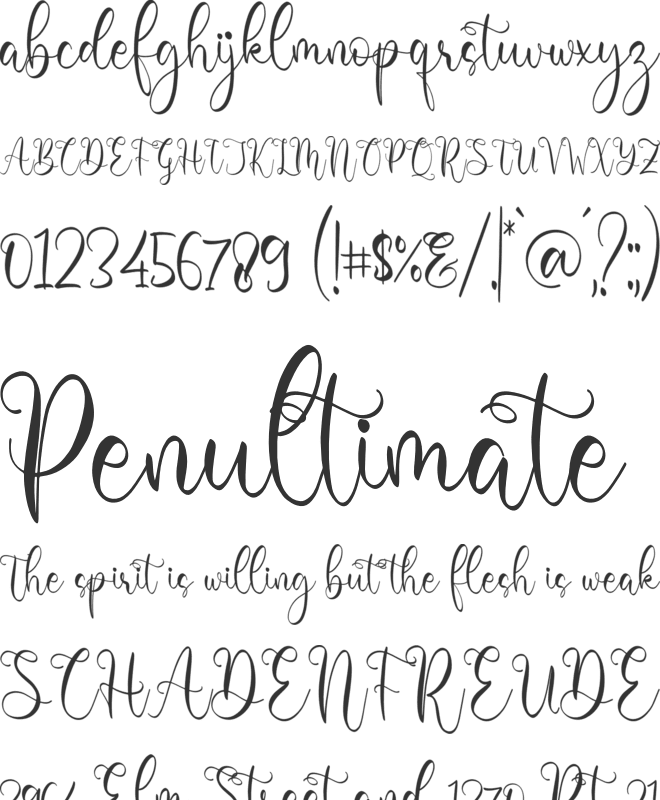 abcdefghijklmnopqrstuvwxyz
ABCDEFGHIJKLMNOPQRSTUVWXYZ
0123456789 (!#$%&/.|*`@´,?:;)
Penultimate
The spirit is willing but the flesh is weak
SCHADENFREUDE
Elm Street and